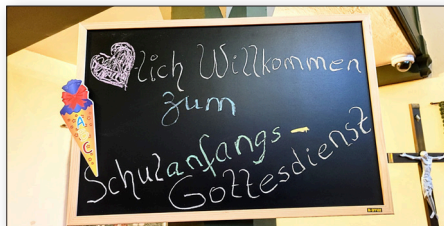 lich Willkommen
zum
Schulanfangs-
Gottesdienst
A
C